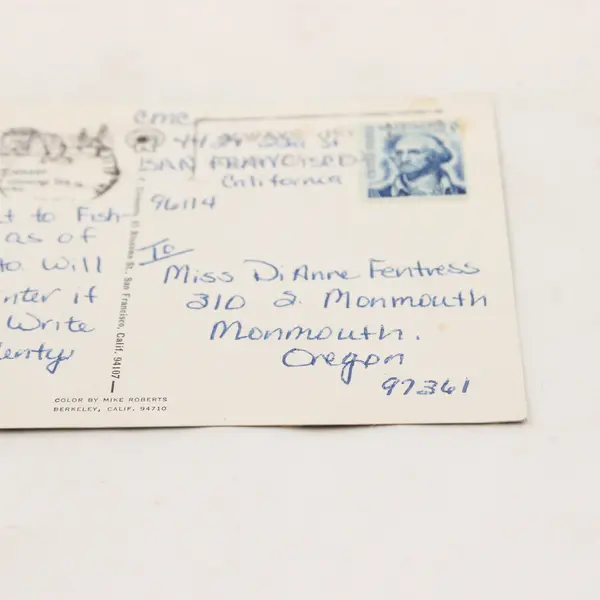 cmc
SAN FRANCISCO
California
96114
t to Fish-
as of
to Will
nter if
Write
lenty
To
Miss DiAnne Fentress
310 S. Monmouth
Monmouth.
Oregon
97361
St. San Francisco, Calif. 94107
COLOR BY MIKE ROBERTS
BERKELEY, CALIF. 94710